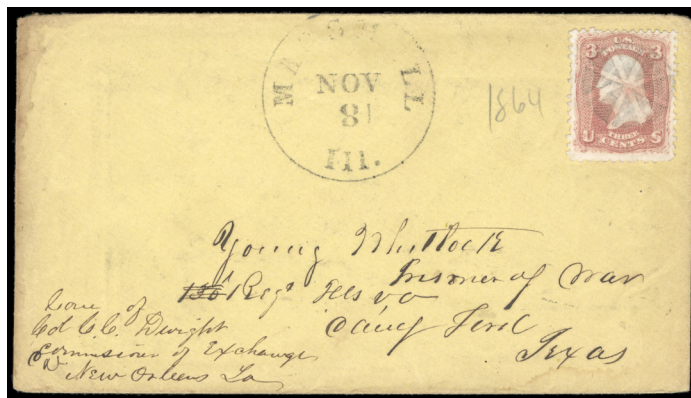 MARSHALL
NOV
8
Ill.
1864
3 U.S. POSTAGE 3
U THREE CENTS S
Young Whitlock
Prisoner of War
130 Regt Ills vo
Camp Ford
Texas
Care of
Col C.C. Dwight
Commissioner of Exchange
New Orleans La